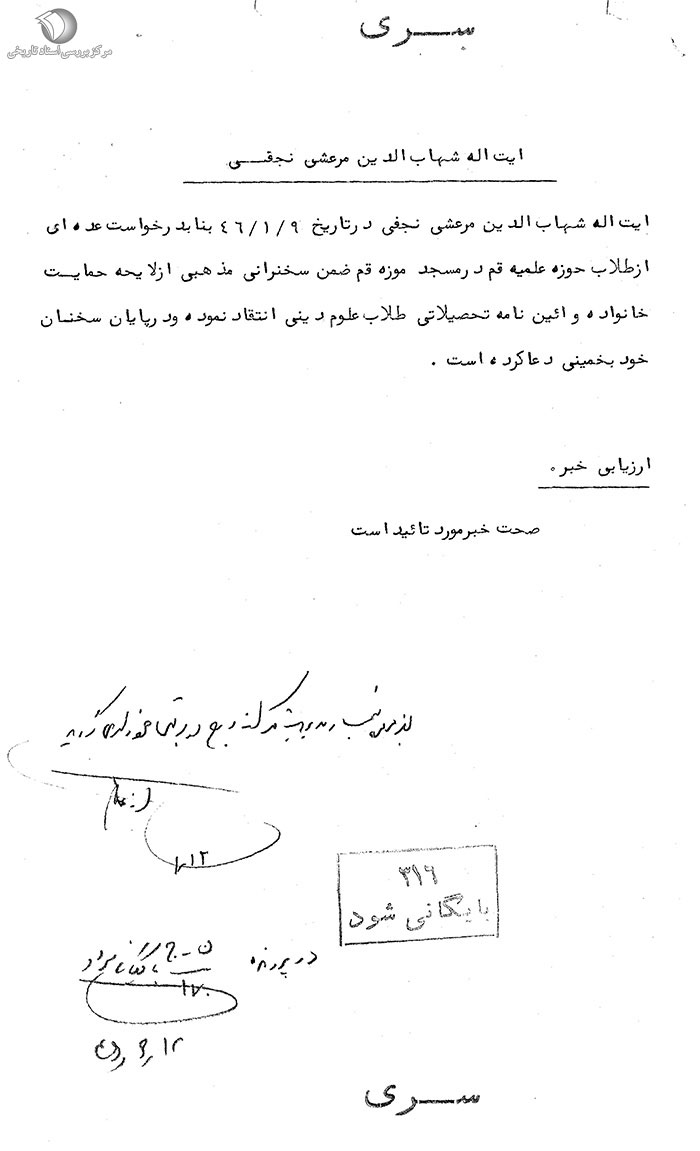 مرکز بررسی اسناد تاریخی
سری
ایت اله شهاب الدین مرعشی نجفی
ایت اله شهاب الدین مرعشی نجفی درتاریخ ۴۶/۱/۹ بنابدرخواست عده ای
ازطلاب حوزه علمیه قم درمسجد موزه قم ضمن سخنرانی مذهبی ازلایحه حمایت
خانواده و ائین نامه تحصیلاتی طلاب علوم دینی انتقاد نموده ودرپایان سخنان
خود بخمینی دعاکرده است .
ارزیابی خبر.
صحت خبرمورد تائید است
۱۲
۳۱۶
بایگانی شود
در پرونده
سری